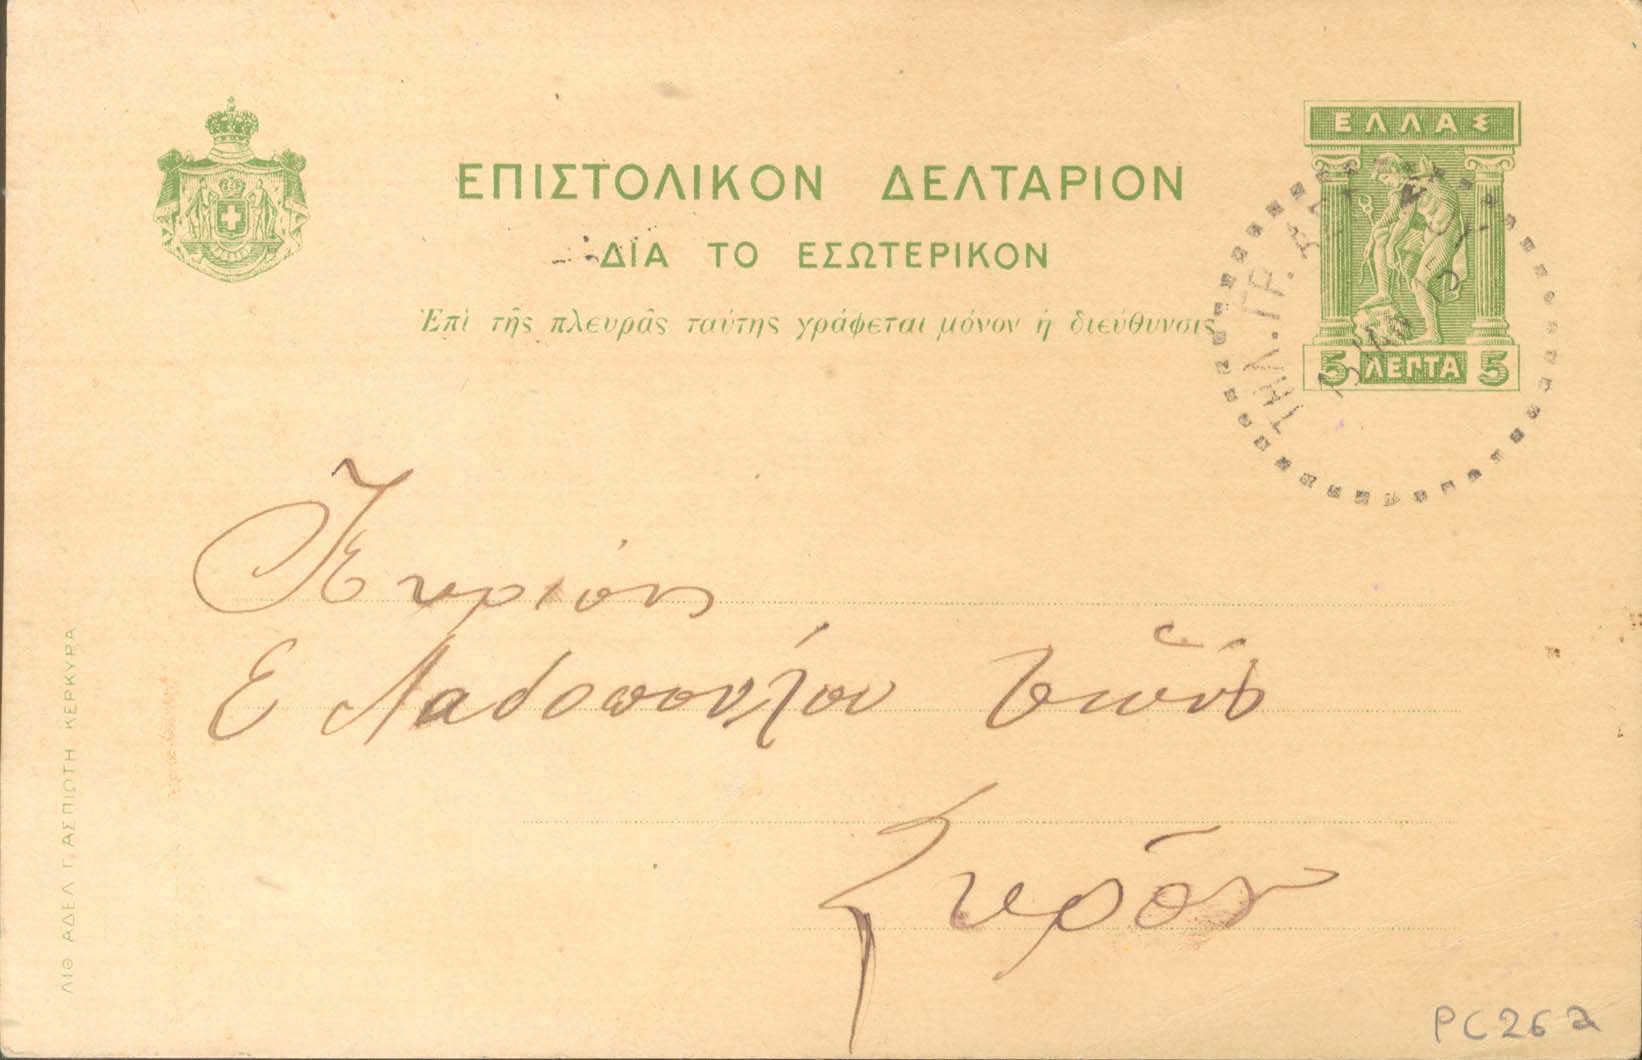 ΕΛΛΑΣ
ΕΠΙΣΤΟΛΙΚΟΝ ΔΕΛΤΑΡΙΟΝ
ΔΙΑ ΤΟ ΕΣΩΤΕΡΙΚΟΝ
Ἐπὶ τῆς πλευρᾶς ταύτης γράφεται μόνον ἡ διεύθυνσις
5 ΛΕΠΤΑ 5
ΤΗΛ. ΓΡ.
Κυρίους
Ε Λαδοπούλου Υἱοὺς
Σῦρον
ΛΙΘ ΑΔΕΛ Γ. ΑΣΠΙΩΤΗ ΚΕΡΚΥΡΑ
PC26a